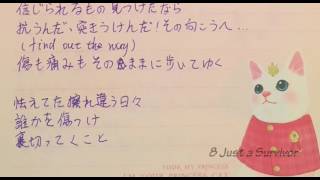 信じられるもの見つけたなら
抗うんだ、突きうけんだ!その向こうへ…
(find out the way)
傷も痛みもそのままに歩いてゆく
怯えてた擦れ違う日々
誰かを傷つけ
裏切ってくこと
8 Just a Survivor